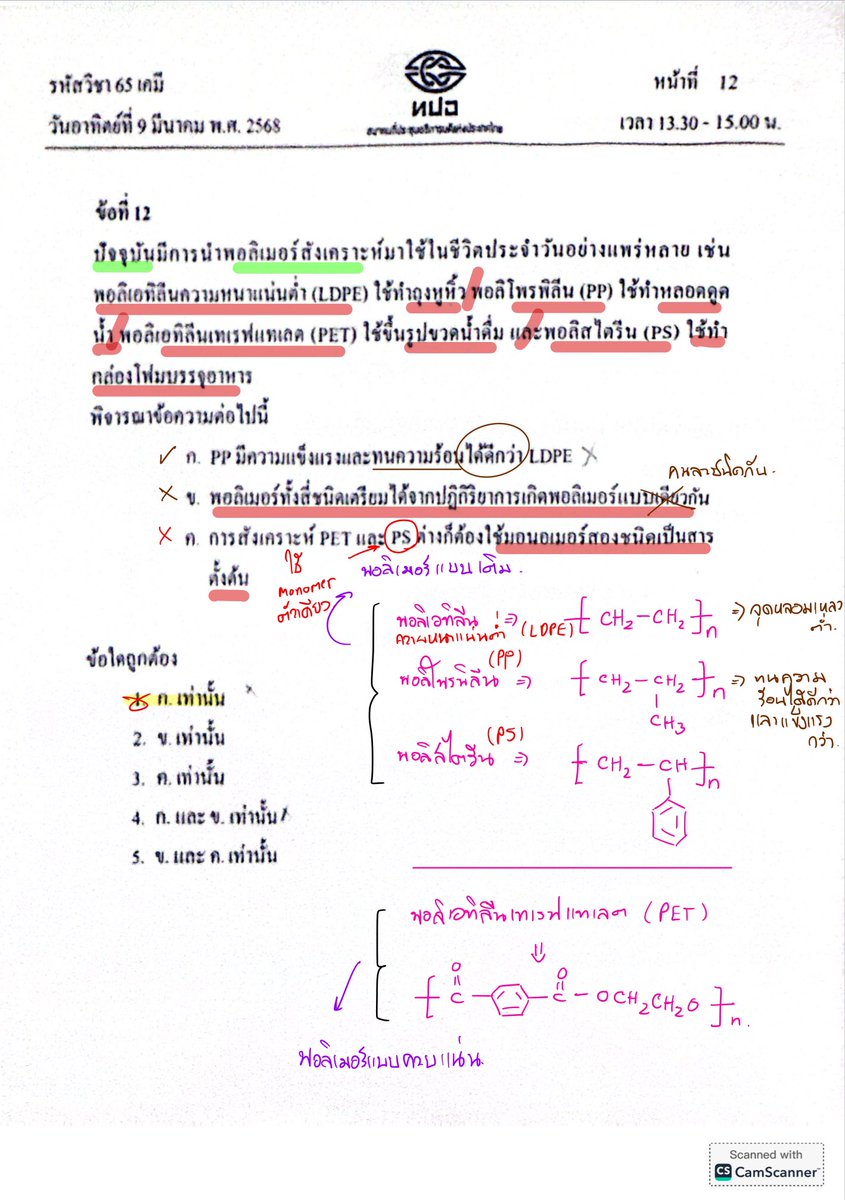 รหัสวิชา 65 เคมี
หน้าที่ 12
ทปอ
สมาคมที่ประชุมอธิการบดีแห่งประเทศไทย
วันอาทิตย์ที่ 9 มีนาคม พ.ศ. 2568
เวลา 13.30 - 15.00 น.
ข้อที่ 12
ปัจจุบันมีการนำพอลิเมอร์สังเคราะห์มาใช้ในชีวิตประจำวันอย่างแพร่หลาย เช่น
พอลิเอทิลีนความหนาแน่นต่ำ (LDPE) ใช้ทำถุงหูหิ้ว พอลิโพรพิลีน (PP) ใช้ทำหลอดดูด
น้ำ พอลิเอทิลีนเทเรฟแทเลต (PET) ใช้ขึ้นรูปขวดน้ำดื่ม และพอลิสไตรีน (PS) ใช้ทำ
กล่องโฟมบรรจุอาหาร
พิจารณาข้อความต่อไปนี้
✓ ก. PP มีความแข็งแรงและทนความร้อนได้ดีกว่า LDPE ×
คนละชนิดกัน.
× ข. พอลิเมอร์ทั้งสี่ชนิดเตรียมได้จากปฏิกิริยาการเกิดพอลิเมอร์แบบเดียวกัน
× ค. การสังเคราะห์ PET และ PS ต่างก็ต้องใช้มอนอเมอร์สองชนิดเป็นสาร
ตั้งต้น
ใช้
monomer
ตัวเดียว
พอลิเมอร์แบบเติม.
พอลิเอทิลีน
ความหนาแน่นต่ำ (LDPE)
⇒ [CH2-CH2]n ⇒ จุดหลอมเหลว
ต่ำ.
ข้อใดถูกต้อง
1. ก. เท่านั้น ×
2. ข. เท่านั้น
3. ค. เท่านั้น
4. ก. และ ข. เท่านั้น ×
5. ข. และ ค. เท่านั้น
พอลิโพรพิลีน (PP) ⇒ [CH2-CH2]n ⇒ ทนความ
CH3
ร้อนได้ดีกว่า
และแข็งแรง
กว่า.
พอลิสไตรีน (PS) ⇒ [CH2-CH]n
พอลิเอทิลีนเทเรฟแทเลต (PET)
⇓
O O
[C C-OCH2CH2O]n.
พอลิเมอร์แบบควบแน่น.
Scanned with
CS CamScanner